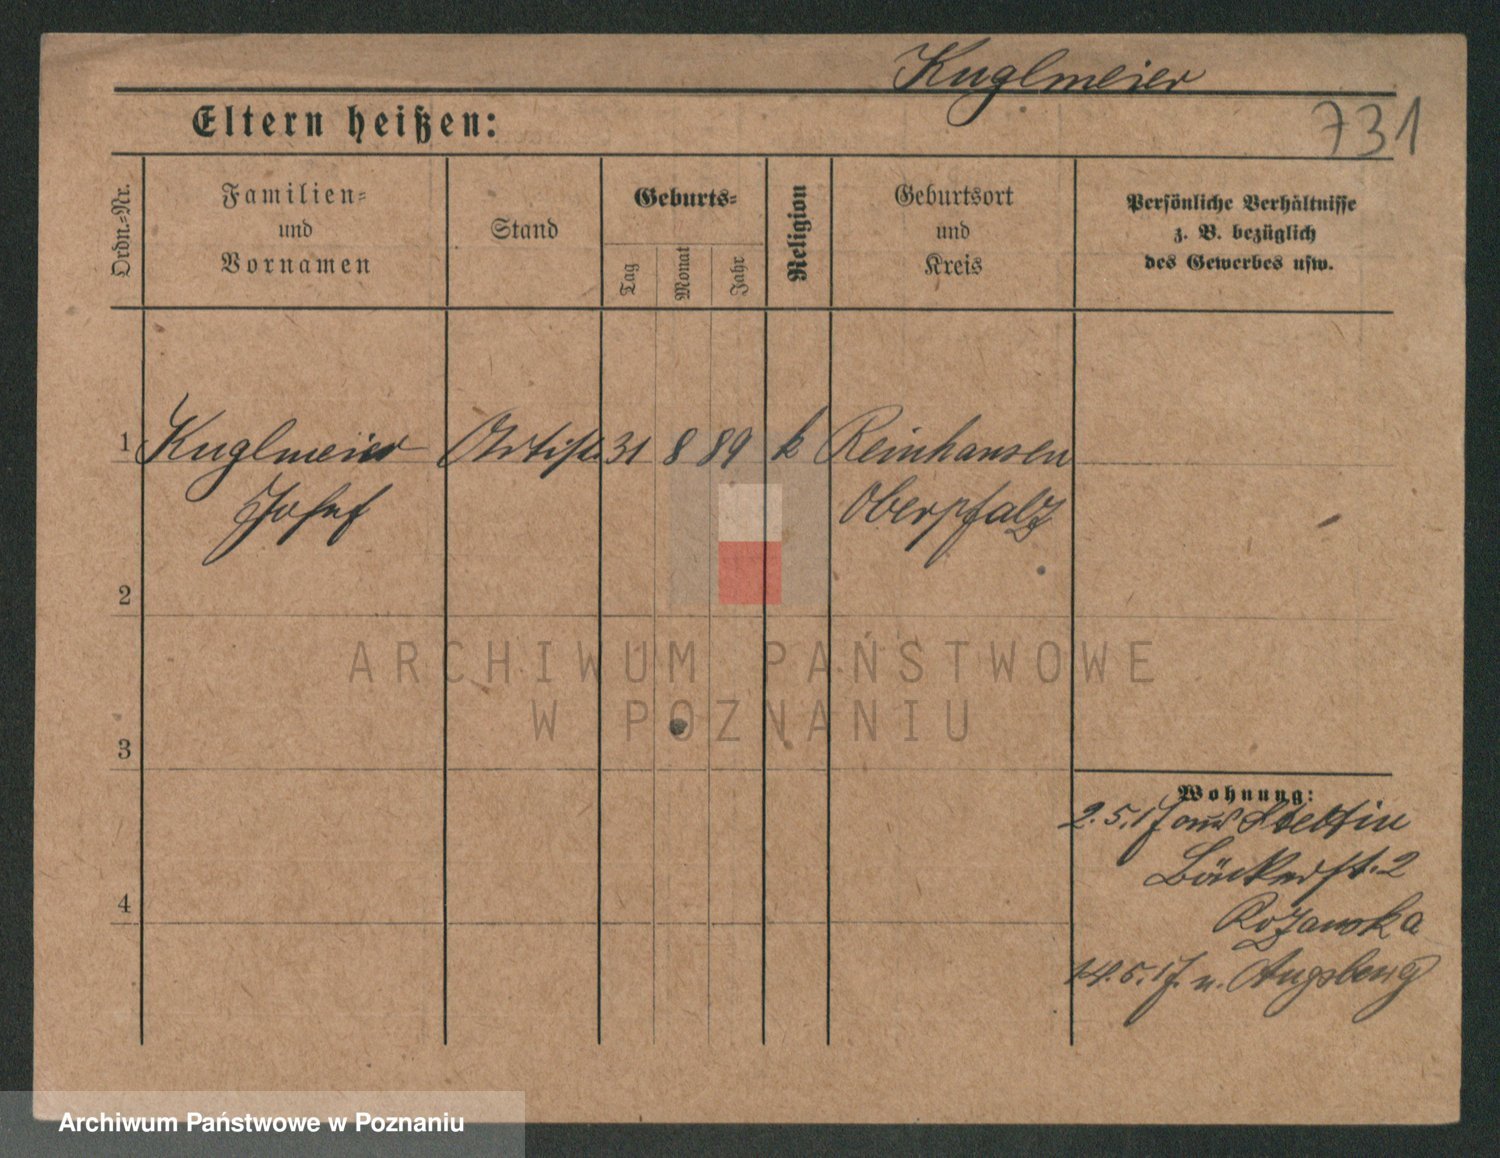 Kuglmeier
Eltern heißen:
731
Ordn.-Nr.
Familien-
und
Vornamen
Stand
Geburts-
Tag
Monat
Jahr
Religion
Geburtsort
und
Kreis
Persönliche Verhältnisse
z. B. bezüglich
des Gewerbes usw.
1 Kuglmeier Artist 31 8 89 k Reinhausen
Josef Oberpfalz
2
ARCHIWUM PAŃSTWOWE
W POZNANIU
3
Wohnung:
2.5.17 aus Stettin
Bäckerst. 2
Rozanska
4
14.5.17. n. Augsburg
Archiwum Państwowe w Poznaniu